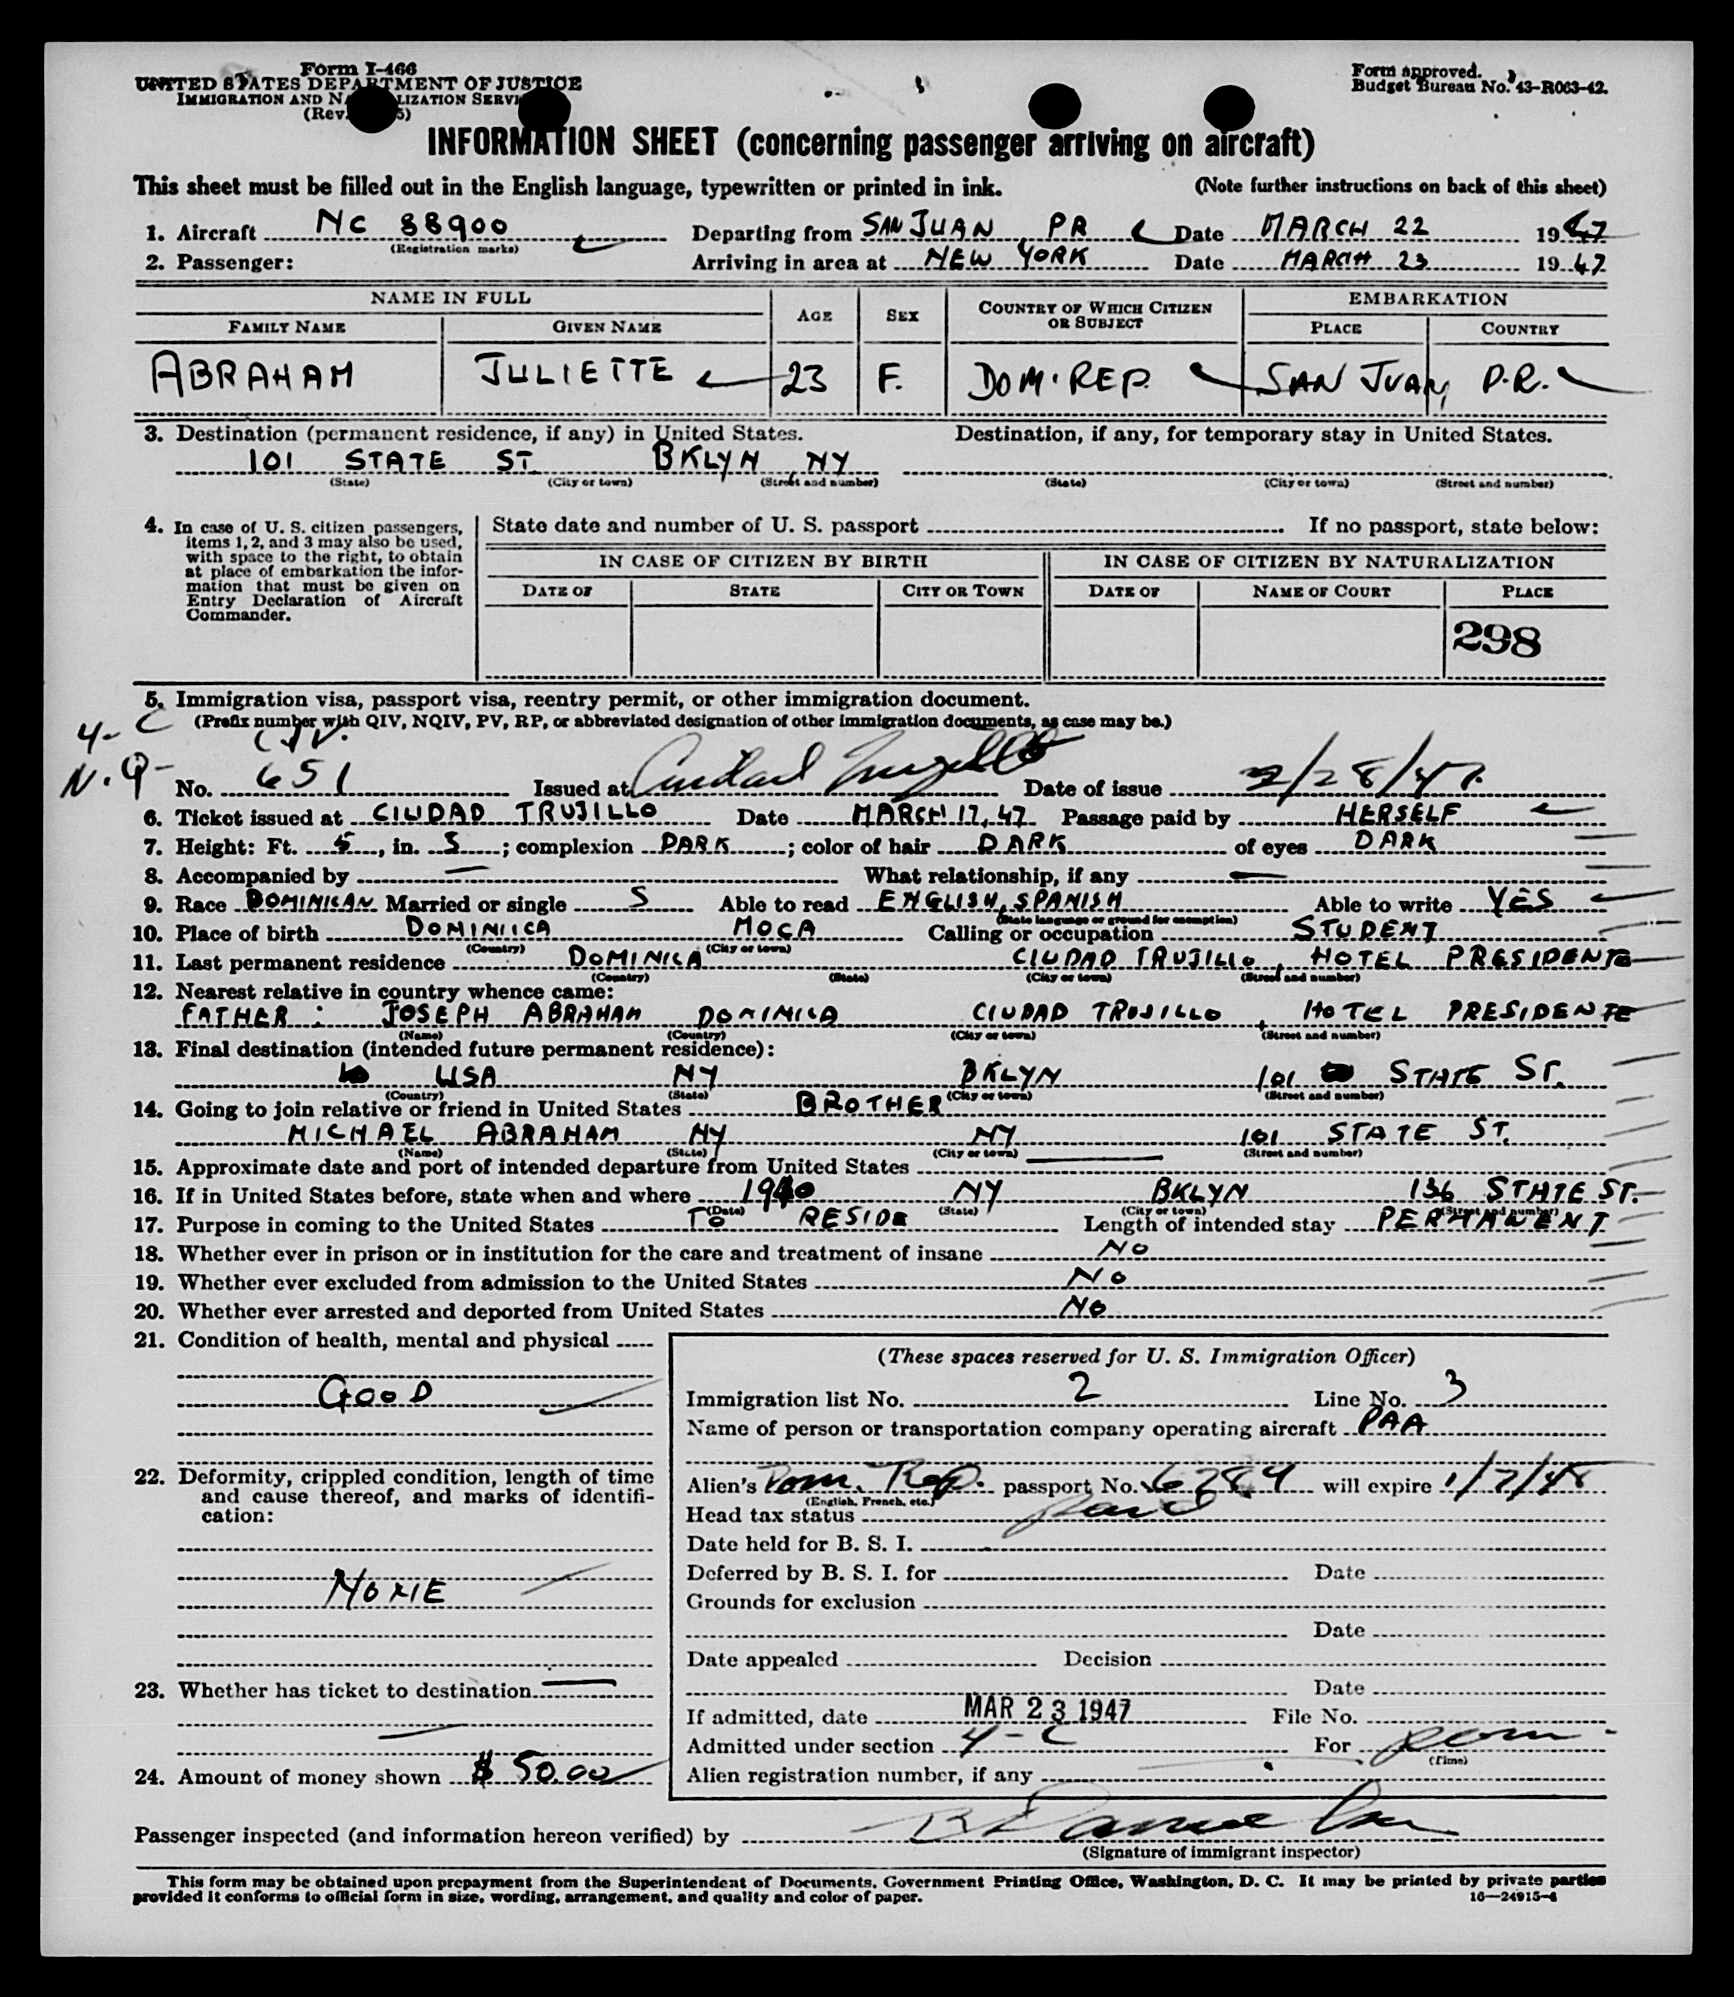 Form I-466
UNITED STATES DEPARTMENT OF JUSTICE
IMMIGRATION AND NATURALIZATION SERVICE
(Rev. 5)
Form approved.
Budget Bureau No. 43-R063-42.
INFORMATION SHEET (concerning passenger arriving on aircraft)
This sheet must be filled out in the English language, typewritten or printed in ink. (Note further instructions on back of this sheet)
1. Aircraft NC 88900 Departing from SAN JUAN PR Date MARCH 22 1947
(Registration marks)
2. Passenger: Arriving in area at NEW YORK Date MARCH 23 1947
NAME IN FULL AGE SEX COUNTRY OF WHICH CITIZEN OR SUBJECT EMBARKATION
FAMILY NAME GIVEN NAME PLACE COUNTRY
ABRAHAM JULIETTE 23 F. DOM. REP. SAN JUAN, P.R.
3. Destination (permanent residence, if any) in United States. Destination, if any, for temporary stay in United States.
101 STATE ST. BKLYN, NY
(State) (City or town) (Street and number) (State) (City or town) (Street and number)
4. In case of U. S. citizen passengers, items 1, 2, and 3 may also be used, with space to the right, to obtain at place of embarkation the information that must be given on Entry Declaration of Aircraft Commander.
State date and number of U. S. passport If no passport, state below:
IN CASE OF CITIZEN BY BIRTH IN CASE OF CITIZEN BY NATURALIZATION
DATE OF STATE CITY OR TOWN DATE OF NAME OF COURT PLACE
298
5. Immigration visa, passport visa, reentry permit, or other immigration document.
(Prefix number with QIV, NQIV, PV, RP, or abbreviated designation of other immigration documents, as case may be.)
4-C
N.Q-
No. 651 Issued at Ciudad Trujillo Date of issue 2/28/47.
6. Ticket issued at CIUDAD TRUJILLO Date MARCH 17, 47 Passage paid by HERSELF
7. Height: Ft. 5, in. 5; complexion DARK; color of hair DARK of eyes DARK
8. Accompanied by — What relationship, if any —
9. Race DOMINICAN Married or single S Able to read ENGLISH, SPANISH Able to write YES
(State language or ground for exemption)
10. Place of birth DOMINIICA MOCA Calling or occupation STUDENT
(Country) (City or town)
11. Last permanent residence DOMINICA CIUDAD TRUJILLO, HOTEL PRESIDENTE
(Country) (State) (City or town) (Street and number)
12. Nearest relative in country whence came:
FATHER: JOSEPH ABRAHAM DOMINICA CIUDAD TRUJILLO, HOTEL PRESIDENTE
(Name) (Country) (City or town) (Street and number)
13. Final destination (intended future permanent residence):
USA NY BKLYN 101 STATE ST.
(Country) (State) (City or town) (Street and number)
14. Going to join relative or friend in United States BROTHER
MICHAEL ABRAHAM NY NY 101 STATE ST.
(Name) (State) (City or town) (Street and number)
15. Approximate date and port of intended departure from United States —
16. If in United States before, state when and where 1940 NY BKLYN 136 STATE ST.
(Date) (State) (City or town) (Street and number)
17. Purpose in coming to the United States TO RESIDE Length of intended stay PERMANENT
18. Whether ever in prison or in institution for the care and treatment of insane NO
19. Whether ever excluded from admission to the United States NO
20. Whether ever arrested and deported from United States NO
21. Condition of health, mental and physical
GOOD
22. Deformity, crippled condition, length of time and cause thereof, and marks of identification:
NONE
23. Whether has ticket to destination —
24. Amount of money shown $ 50.00
(These spaces reserved for U. S. Immigration Officer)
Immigration list No. 2 Line No. 3
Name of person or transportation company operating aircraft PAA
Alien's Dom. Rep. passport No. 6784 will expire 1/7/48
(English, French, etc.)
Head tax status Paid
Date held for B. S. I.
Deferred by B. S. I. for Date
Grounds for exclusion
Date
Date appealed Decision
Date
If admitted, date MAR 23 1947 File No.
Admitted under section 4-C For Perm
(Time)
Alien registration number, if any
Passenger inspected (and information hereon verified) by
(Signature of immigrant inspector)
This form may be obtained upon prepayment from the Superintendent of Documents, Government Printing Office, Washington, D. C. It may be printed by private parties
provided it conforms to official form in size, wording, arrangement, and quality and color of paper. 16—24915-4